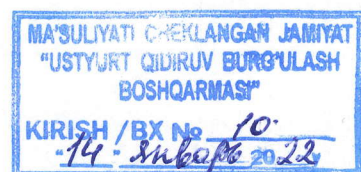 MA'SULIYATI CHEKLANGAN JAMIYAT
"USTYURT QIDIRUV BURG'ULASH
BOSHQARMASI"
KIRISH /BX № 10
"14" январь 2022